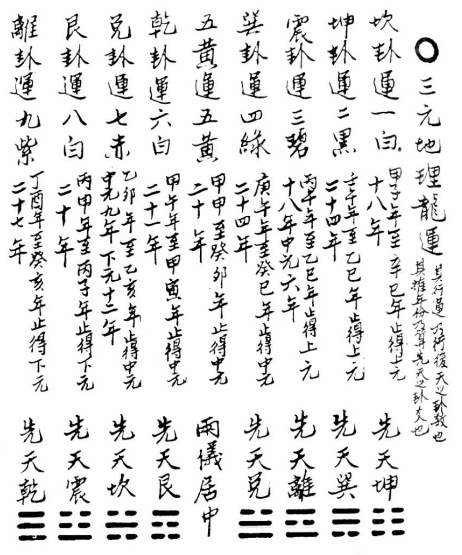 ○三元地理龍運
其行運乃行後天之卦数也
其推年份乃算先天之卦爻也
坎卦運一白
甲子年至辛巳年止得上元
十八年
先天坤
坤卦運二黑
壬午年至乙巳年止得上元
二十四年
先天巽
震卦運三碧
丙午年至乙巳年止得上元
十八年中元六年
先天離
巽卦運四綠
庚午年至癸巳年止得中元
二十四年
先天兌
五黃運五黃
甲申年至癸卯年止得中元
二十年
兩儀居中
乾卦運六白
甲午年至甲寅年止得中元
二十一年
先天艮
兌卦運七赤
乙卯年至乙亥年止得中元
中元九年下元十二年
先天坎
艮卦運八白
丙申年至丙子年止得下元
二十年
先天震
離卦運九紫
丁酉年至癸亥年止得下元
二十七年
先天乾